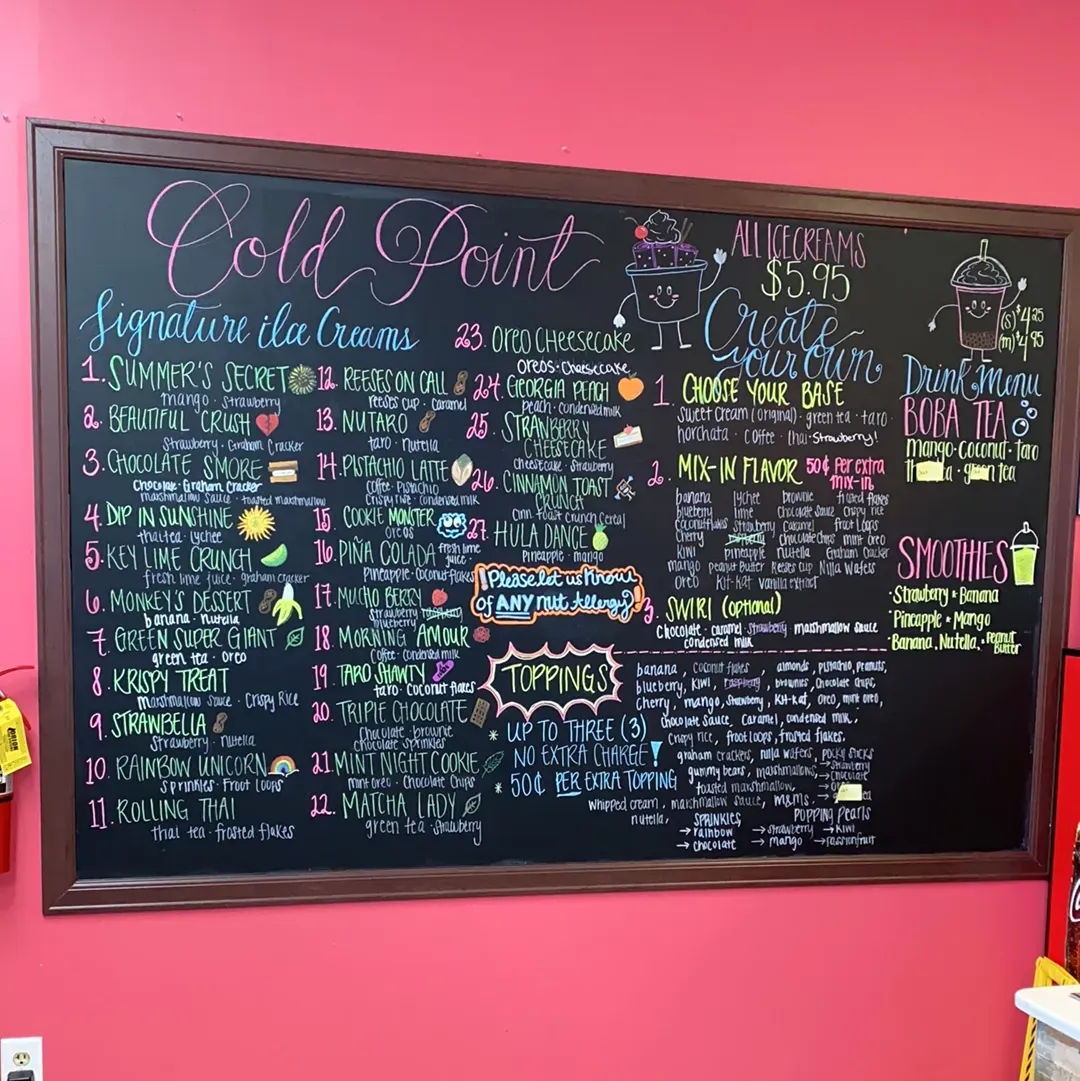 Cold Point
Signature ice Creams
1. SUMMER'S SECRET
mango · strawberry
2. BEAUTIFUL CRUSH
Strawberry · Graham Cracker
3. CHOCOLATE SMORE
Chocolate · Graham Cracker
marshmallow sauce · toasted marshmallow
4. DIP IN SUNSHINE
thai tea · lychee
5. KEY LIME CRUNCH
fresh lime juice · graham cracker
6. MONKEY'S DESSERT
banana · nutella
7. GREEN SUPER GIANT
green tea · oreo
8. KRISPY TREAT
marshmallow sauce · Crispy Rice
9. STRAWBELLA
Strawberry · nutella
10. RAINBOW UNICORN
Sprinkles · Froot loops
11. ROLLING THAI
thai tea · frosted flakes
12. REESES ON CALL
reeses cup · caramel
13. NUTARO
taro · nutella
14. PISTACHIO LATTE
coffee · Pistachio
Crispy rise · condensed milk
15 COOKIE MONSTER
oreos
16. PIÑA COLADA fresh lime juice ·
Pineapple · coconut flakes
17. MUCHO BERRY
strawberry
blueberry
18. MORNING AMOUR
Coffee · condensed milk
19. TARO SHAWTY
taro · coconut flakes
20. TRIPLE CHOCOLATE
Chocolate · brownie
chocolate sprinkles
21. MINT NIGHT COOKIE
mint oreo · Chocolate Chips
22. MATCHA LADY
green tea · strawberry
23. OREO CHEESECAKE
oreos · cheesecake
24. GEORGIA PEACH
peach · condensed milk
25. STRANBERRY
CHEESECAKE
cheesecake · strawberry
26. CINNAMON TOAST
CRUNCH
Cinn. Toast Crunch Cereal
27. HULA DANCE
Pineapple · mango
!Please let us know
of ANY nut allergy!
ALL ICECREAMS
$5.95
Create
your own
1. CHOOSE YOUR BASE
Sweet cream (original) · green tea · taro
horchata · coffee · thai · Strawberry!
2. MIX-IN FLAVOR 50¢ per extra mix-in
banana lychee brownie frosted flakes
blueberry lime chocolate sauce crispy rice
coconut flakes strawberry caramel froot loops
cherry chocolate chips mint oreo
kiwi pineapple nutella Graham Cracker
mango peanut butter Reeses cup Nilla Wafers
oreo kit-kat vanilla extract
3. SWIRL (optional)
Chocolate · caramel · strawberry marshmallow sauce
condensed milk
TOPPINGS
* UP TO THREE (3)
NO EXTRA CHARGE!
* 50¢ PER EXTRA TOPPING
banana, coconut flakes almonds, pistachio, peanuts,
blueberry, kiwi, raspberry, brownies, chocolate chips,
cherry, mango, strawberry, kit-kat, oreo, mint oreo,
chocolate sauce, caramel, condensed milk,
crispy rice, froot loops, frosted flakes,
graham crackers, nilla wafers, pocky sticks
gummy bears, marshmallows, → strawberry
toasted marshmallow, → chocolate
whipped cream, marshmallow sauce, m&ms,
nutella,
SPRINKLES
→ rainbow
→ chocolate
POPPING PEARLS
→ strawberry → kiwi
→ mango → passionfruit
(s) $4.25
(m) $4.95
Drink Menu
BOBA TEA
mango · coconut · taro
SMOOTHIES
· Strawberry * Banana
· Pineapple * Mango
· Banana, Nutella, * Peanut Butter